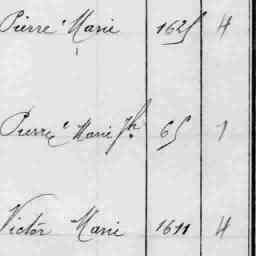 Pierre Marie 1625 4
Pierre Marie Jh 65 1
Victor Marie 1611 4